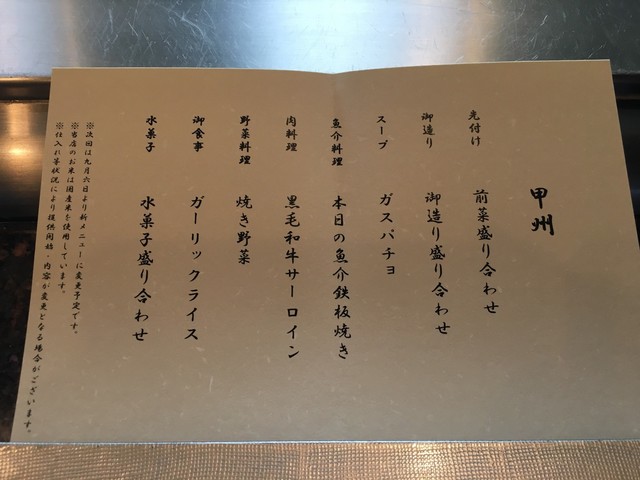 甲州
先付け 前菜盛り合わせ
御造り 御造り盛り合わせ
スープ ガスパチョ
魚介料理 本日の魚介鉄板焼き
肉料理 黒毛和牛サーロイン
野菜料理 焼き野菜
御食事 ガーリックライス
水菓子 水菓子盛り合わせ
※次回は九月六日より新メニューに変更予定です。
※当店のお米は国産米を使用しています。
※仕入れ等状況により提供開始・内容が変更となる場合がございます。